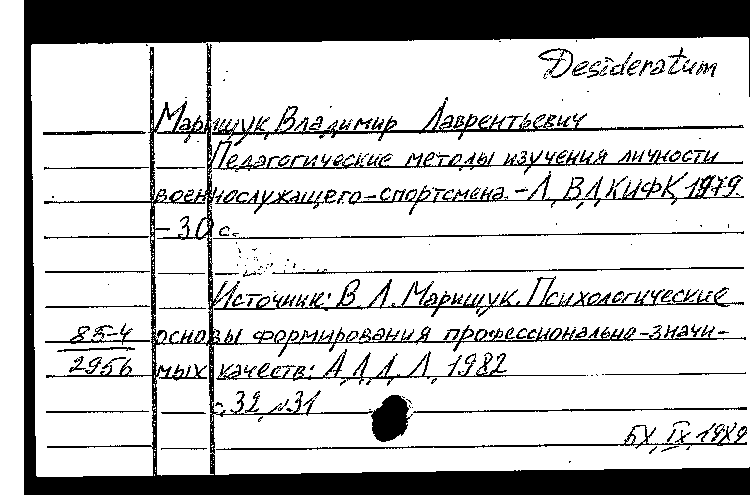 Desideratum
Марищук, Владимир Лаврентьевич
Педагогические методы изучения личности
военнослужащего-спортсмена. - Л., ВДКИФК, 1979.
- 30 с.
Источник: В. Л. Марищук. Психологические
85-4 основы формирования профессионально-значи-
2956 мых качеств: А.Д.Д. Л., 1982
с. 32, №31
БХ, IX, 1989